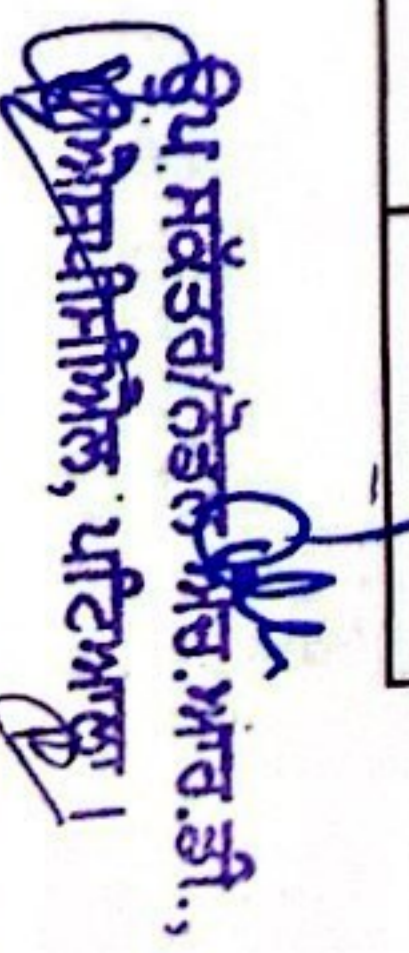 ਉਪ ਸਕੱਤਰ/ਨੋਡਲ ਐਚ.ਆਰ.ਡੀ.,
ਪੀਐਸਪੀਸੀਐਲ, ਪਟਿਆਲਾ।